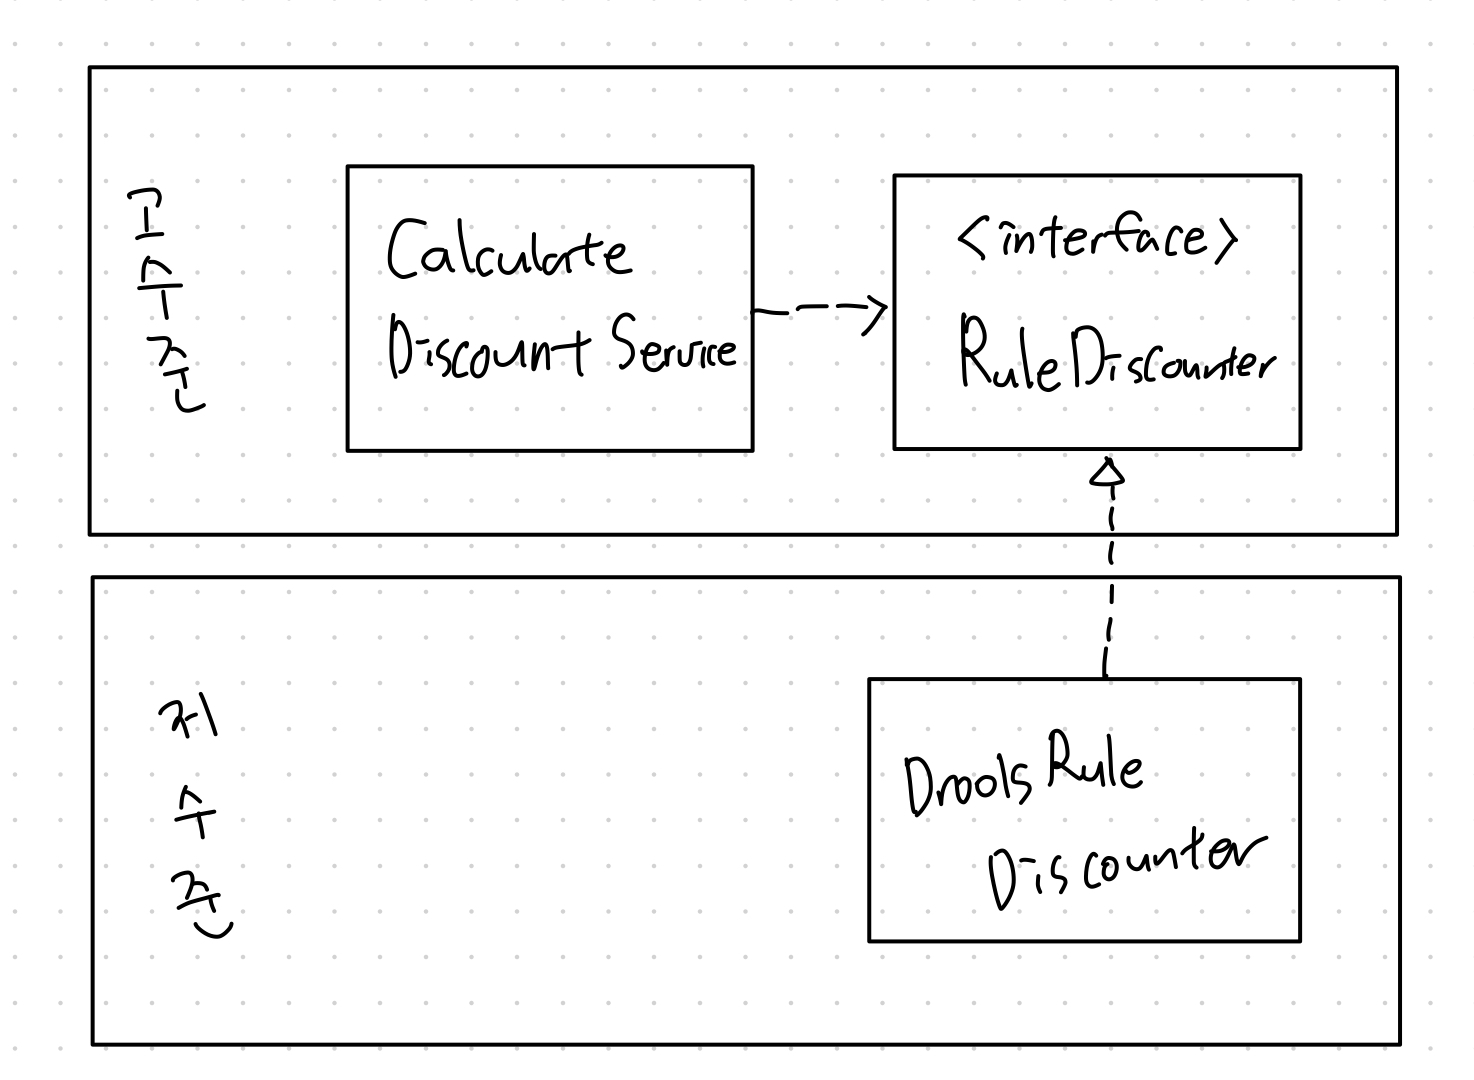 고
수
준
Calculate
Discount Service
<interface>
RuleDiscounter
저
수
준
Drools Rule
Discounter